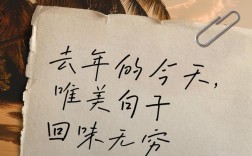 去年的今天，
唯美句子
回味无穷